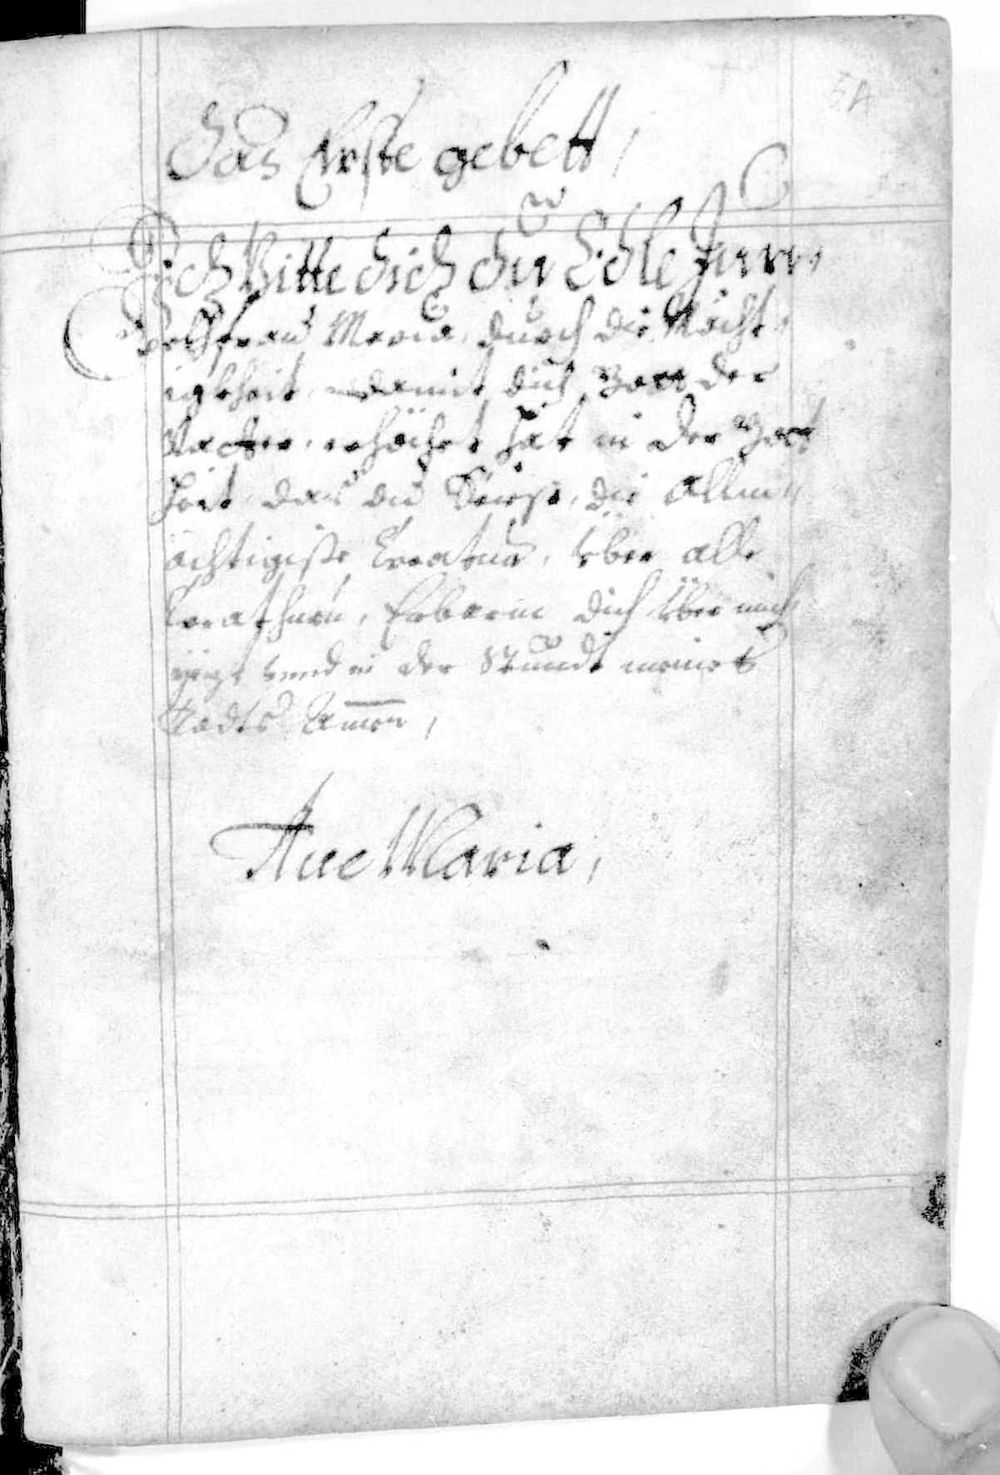 54
Das Erste gebett,
Ich Bitte dich du Edle Junn,
Maria, durch die Mächt,
igkheit, damit dich Gott der
Vatter, erhöchet hat in der Gott
heit das du Seÿst, die Allm,,
ächtigiste Creatur, Über alle
Creathurn, Erbarm dich über mich
yezt vnnd in der Stundt meines
Todts Amen,
Aue Maria,